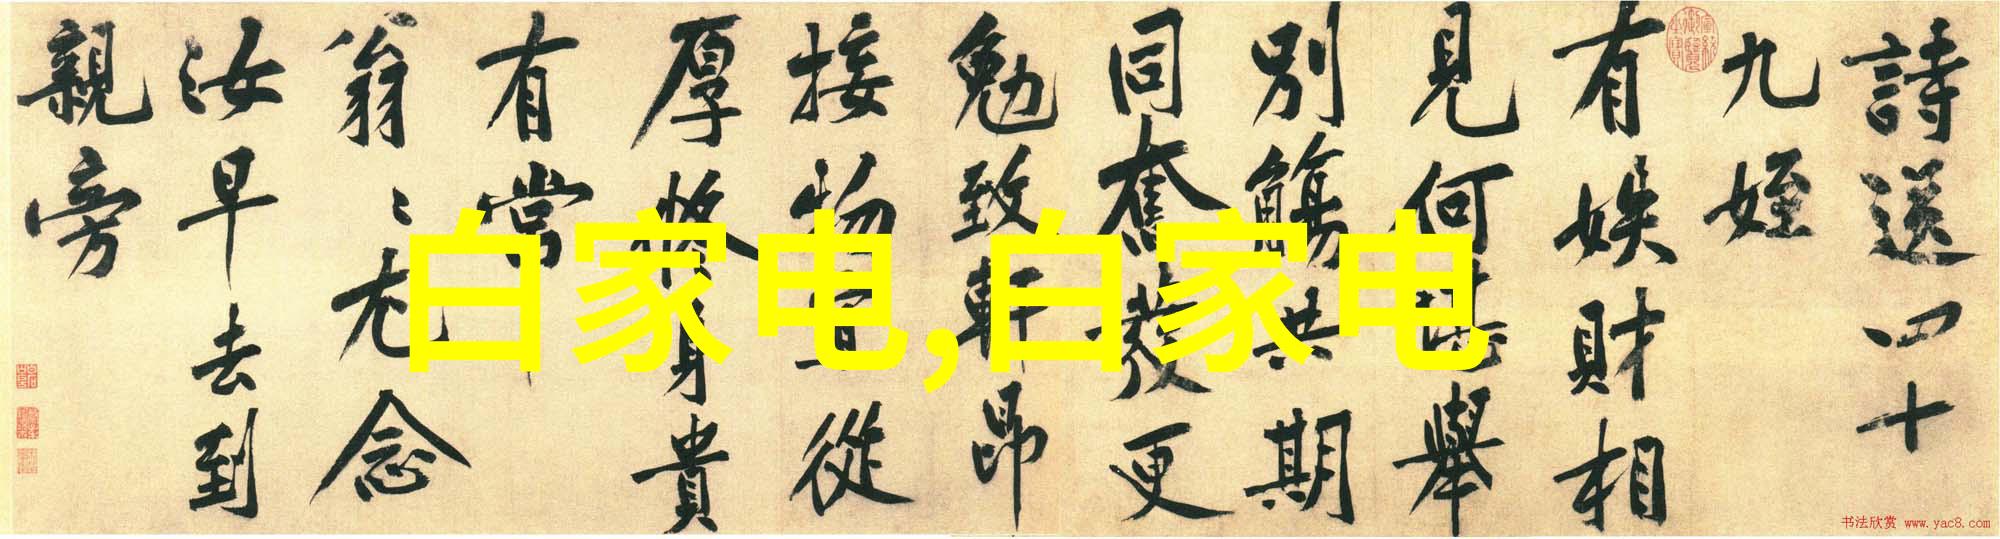 詩送四十
九姪
有娱財相
見何舉
別觴共期
同奮發更
勉致軒昂
接物宜從
厚將身貴
有常
翁〻尤念
汝早去到
親旁
白家电,白家电
书法欣赏 www.yac8.com